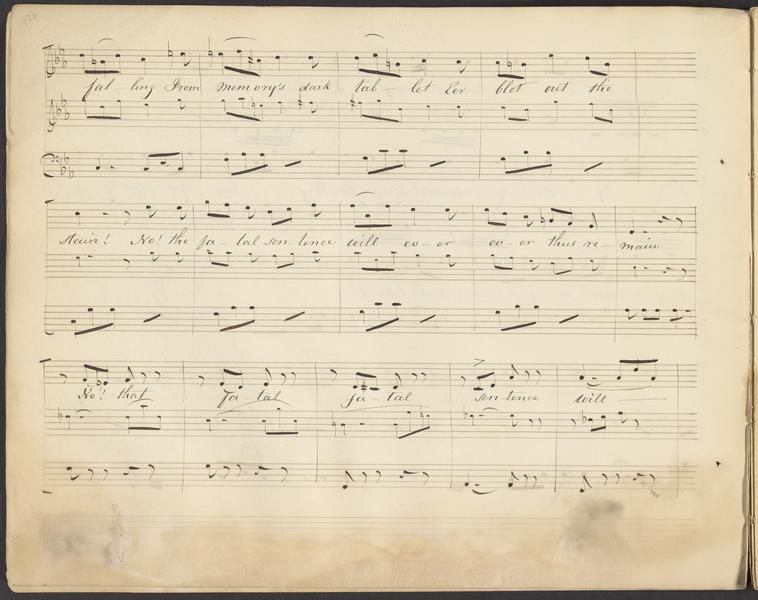 126
fal - ling From memory's dark tab - let Eer blot out the
stain! No! the fa - tal sen - tence will ev - er ev - er thus re - main
No! that fa - tal fa - tal sen - tence will